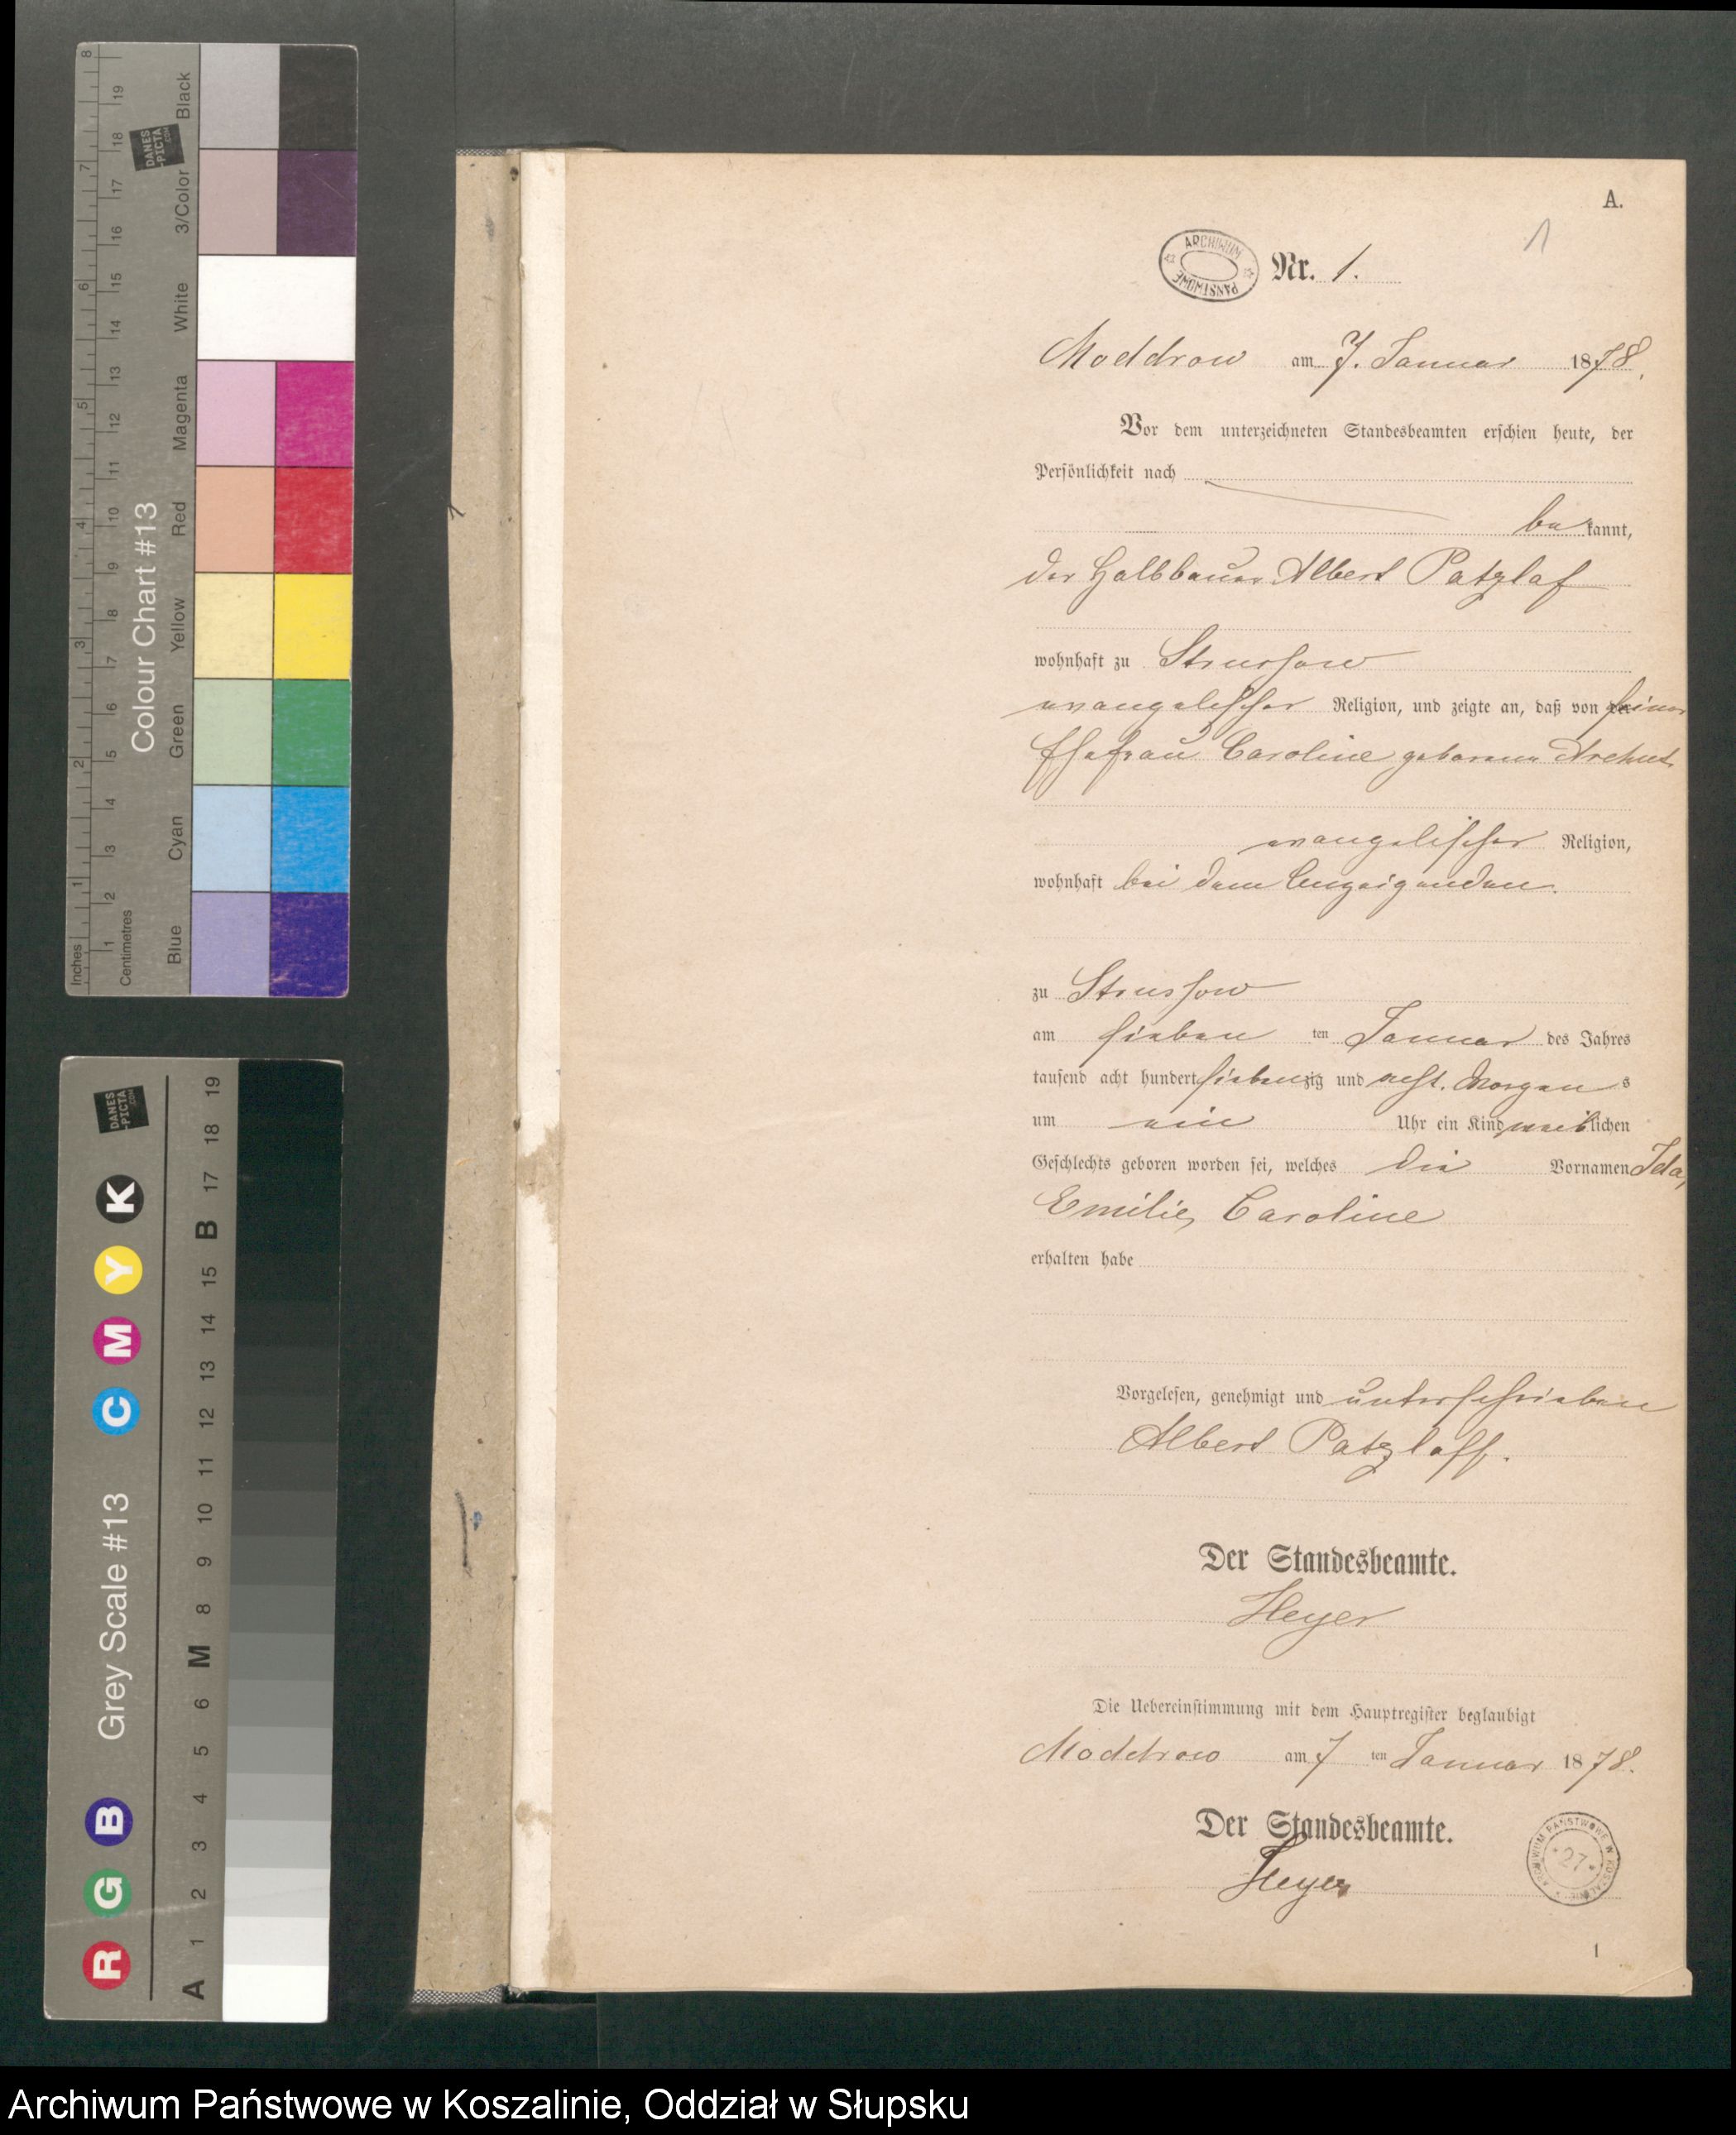 A.
1
ARCHIWUM PAŃSTWOWE
Nr. 1.
Moddrow am 7. Januar 1878.
Vor dem unterzeichneten Standesbeamten erschien heute, der
Persönlichkeit nach
be kannt,
der Halbbauer Albert Patzlaf
wohnhaft zu Strussow
evangelischer Religion, und zeigte an, daß von seiner
Ehefrau Caroline geborene
evangelischer Religion,
wohnhaft bei dem Anzeigenden.
zu Strussow
am sieben ten Januar des Jahres
tausend acht hundert siebenzig und acht. Morgens
um ein Uhr ein Kind weiblichen
Geschlechts geboren worden sei, welches die Vornamen Ida,
Emilie, Caroline
erhalten habe
Vorgelesen, genehmigt und unterschrieben
Albert Patzlaff.
Der Standesbeamte.
Heyer
Die Uebereinstimmung mit dem Hauptregister beglaubigt
Moddrow am 7 ten Januar 1878.
Der Standesbeamte.
Heyer
ARCHIWUM PAŃSTWOWE W KOSZALINIE
27
1
Colour Chart #13
Inches
1 2 3 4 5 6 7 8
Centimetres
1 2 3 4 5 6 7 8 9 10 11 12 13 14 15 16 17 18 19
Blue Cyan Green Yellow Red Magenta White 3/Color Black
DANES
-PICTA
.COM
Grey Scale #13
R G B C M Y K
A 1 2 3 4 5 6 M 8 9 10 11 12 13 14 15 B 17 18 19
DANES
-PICTA
.COM
Archiwum Państwowe w Koszalinie, Oddział w Słupsku